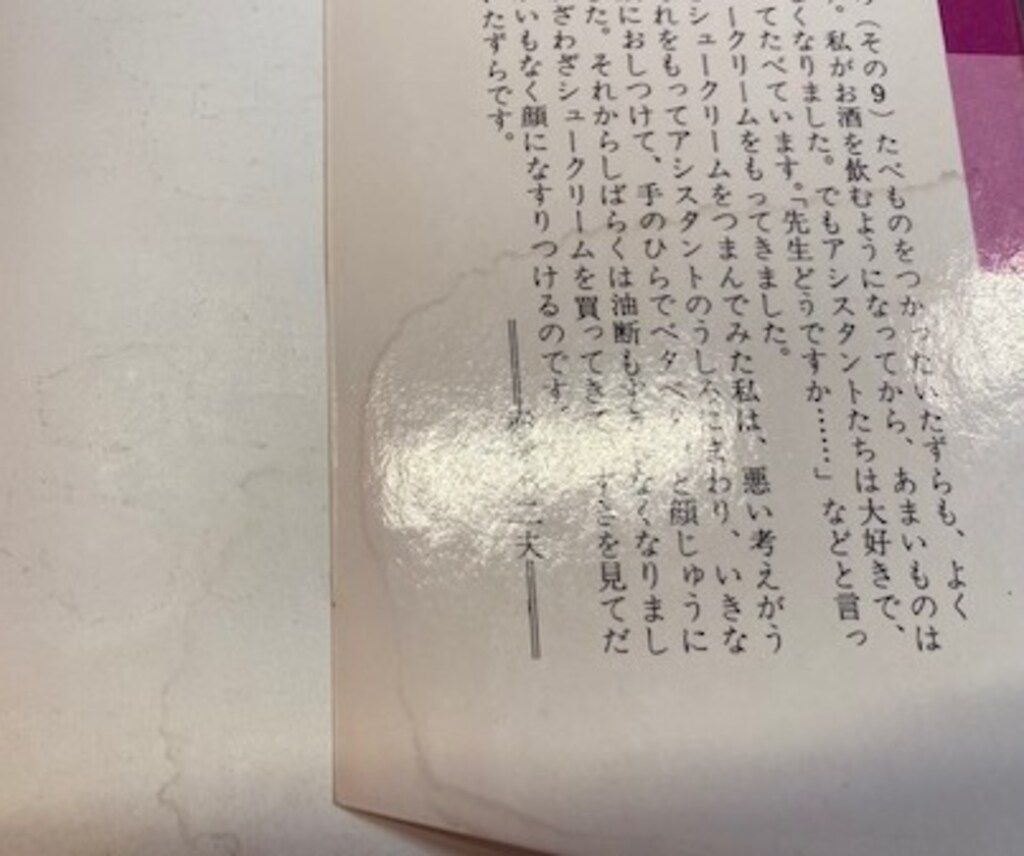 （その9）たべものをつかったいたずらも、よく
。私がお酒を飲むようになってから、あまいものは
くなりました。でもアシスタントたちは大好きで、
てたべています。「先生どうですか……」などと言っ
ークリームをもってきました。
シュークリームをつまんでみた私は、悪い考えがう
れをもってアシスタントのうしろにまわり、いきな
におしつけて、手のひらでベタベタと顔じゅうに
た。それからしばらくは油断も なくなりまし
ざわざシュークリームを買ってきて を見てだ
いもなく顔になすりつけるのです。
たずらです。
二夫